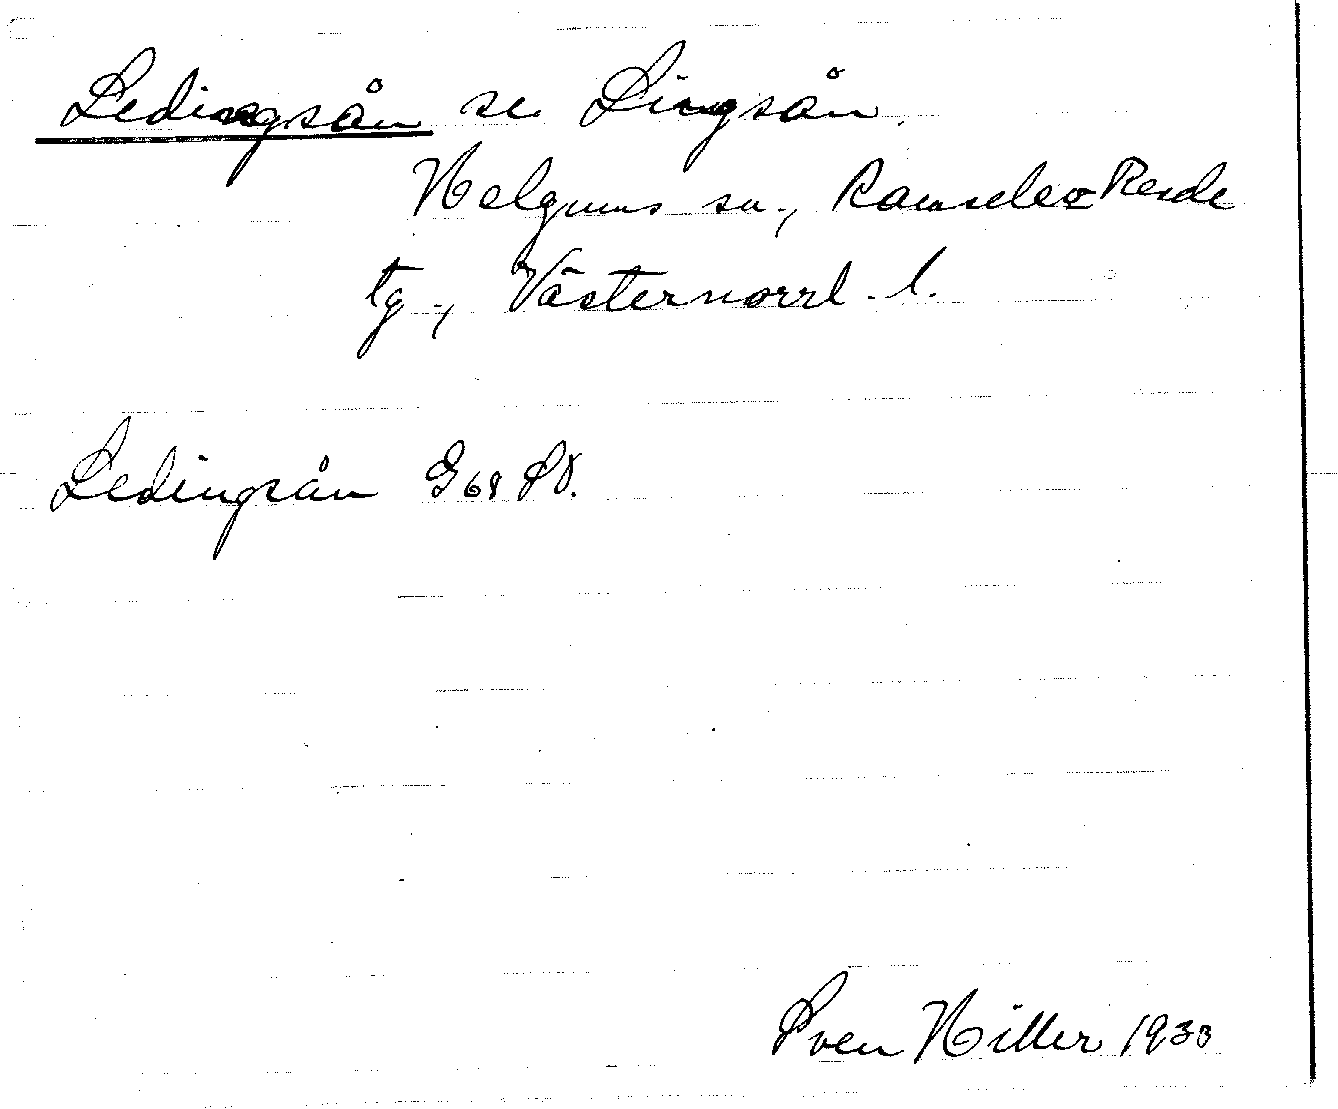 Ledingsån se Lingsån.
Helgums sn., Ramsele o Resele
tg., Västernorrl. l.
Ledingsån G 68 SO.
Sven Hiller 1933